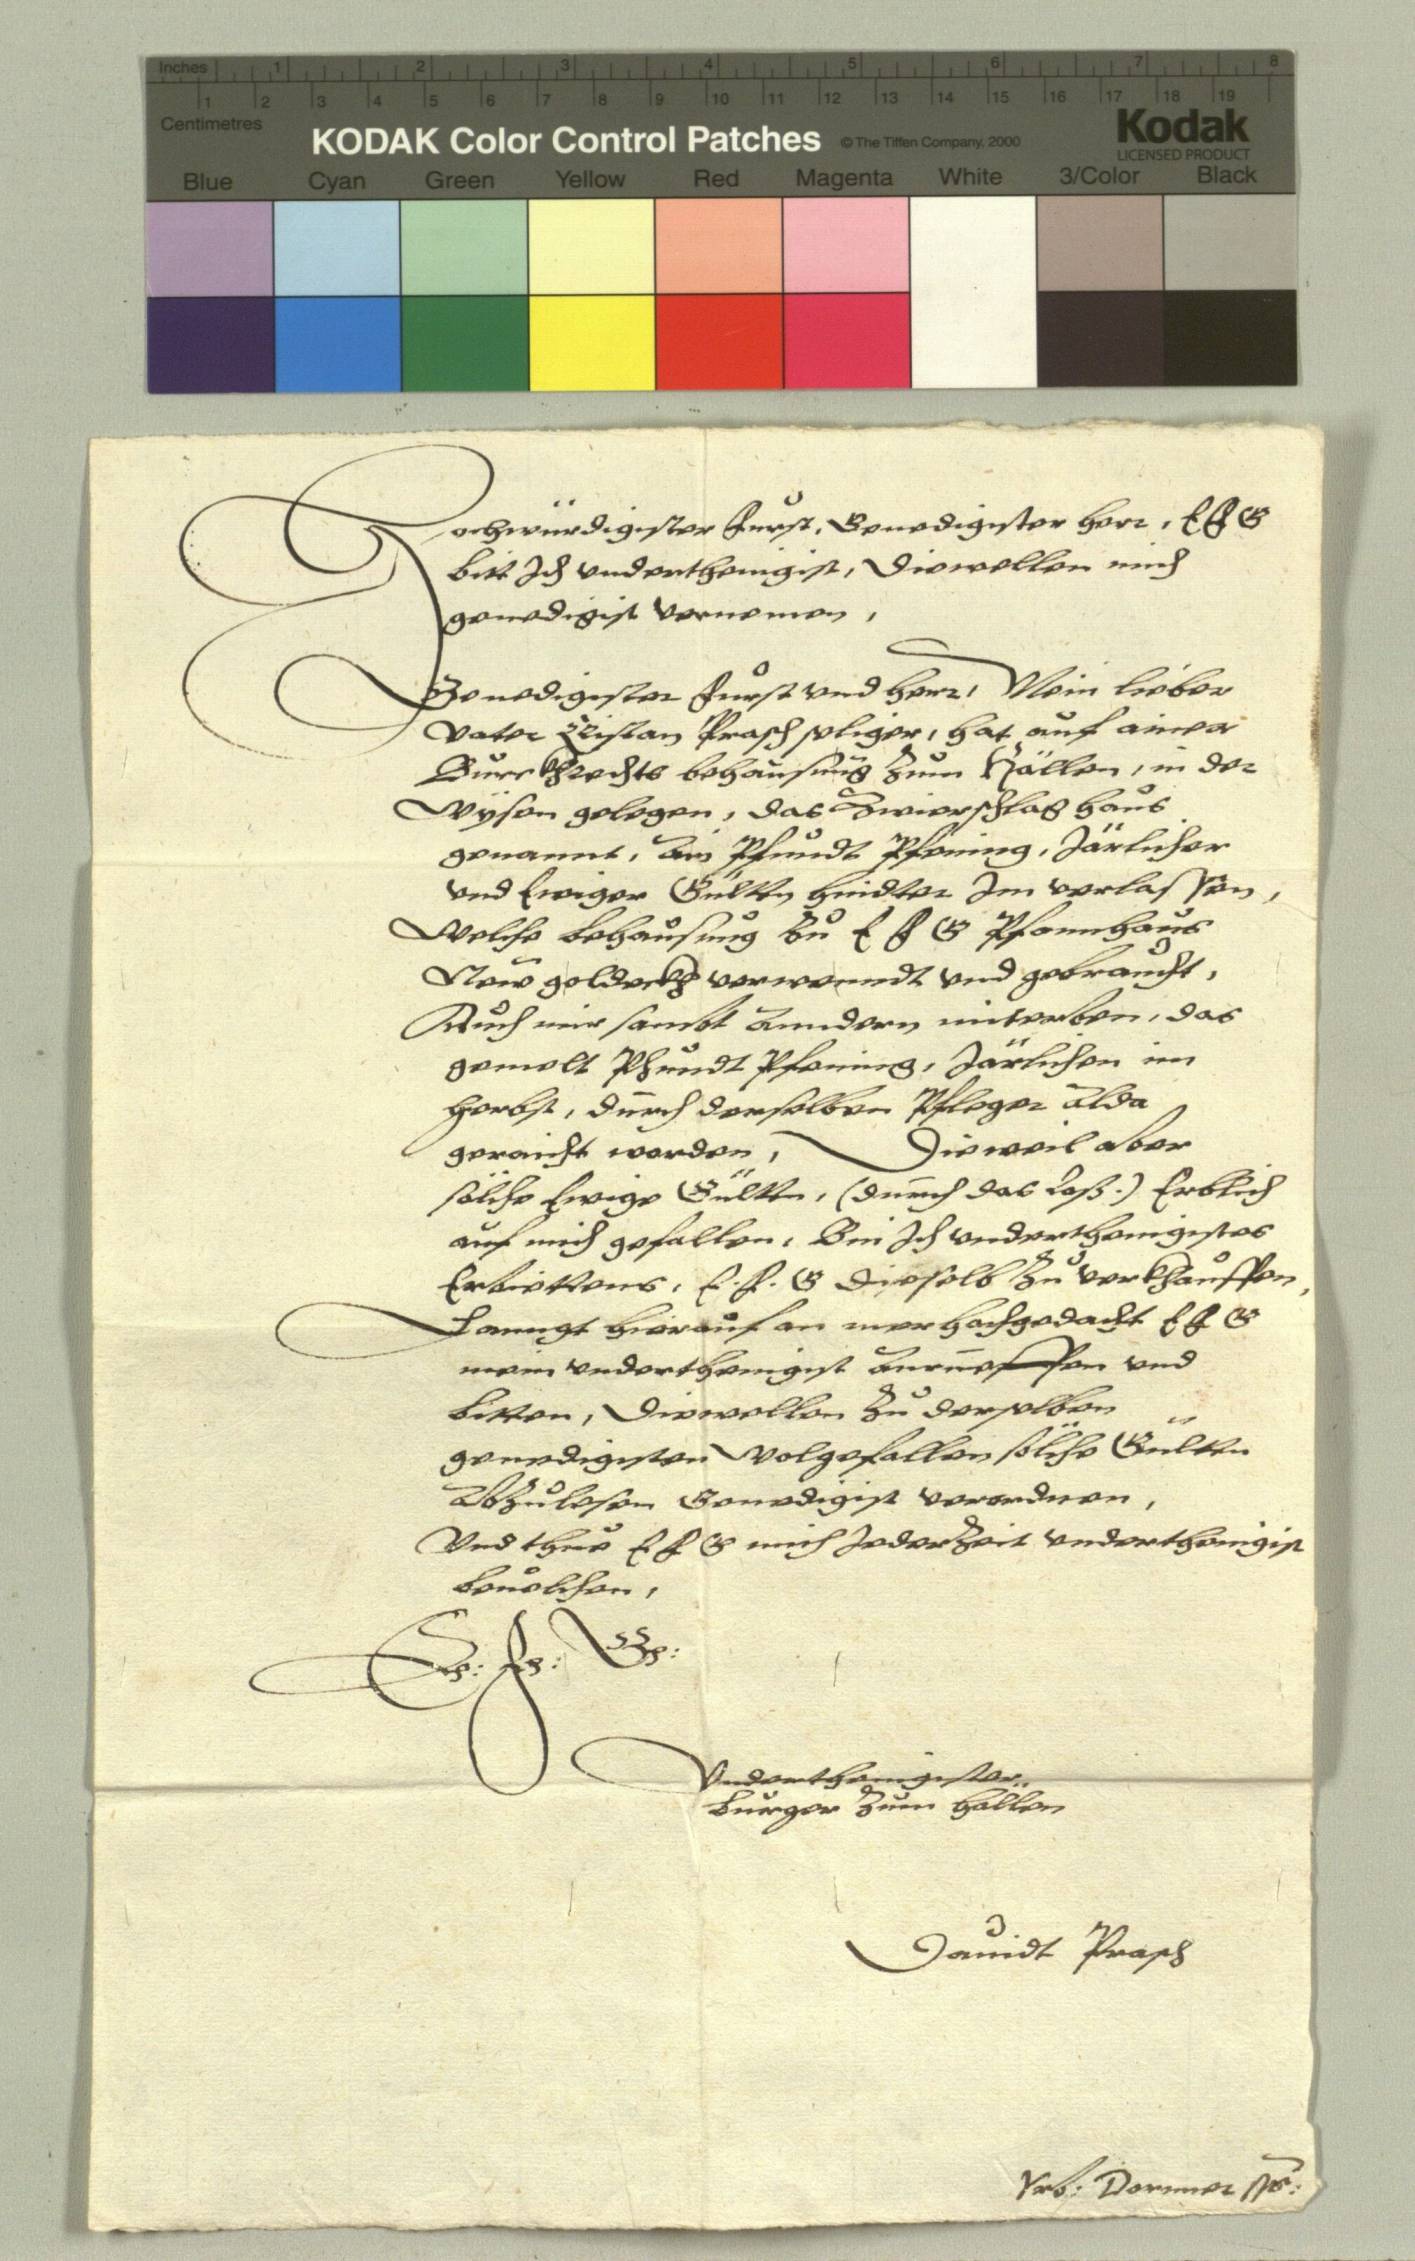 Inches 1 2 3 4 5 6 7 8
1 2 3 4 5 6 7 8 9 10 11 12 13 14 15 16 17 18 19
Centimetres
KODAK Color Control Patches © The Tiffen Company, 2000 Kodak
LICENSED PRODUCT
Blue Cyan Green Yellow Red Magenta White 3/Color Black
Hochwürdigister Fürst, Genedigister herr, E F G
bitt Ich vnderthenigist, Die wellen mich
genedigist vernemen,
Genedigister Fürst vnd herr, Mein lieber
vater Cristan Prasch seliger, hat auf ainer
Burckhrechts behausung Zum Hällen, in der
Wysen gelegen, das Zwierschlag haus
genannt, Ain Pfundt Pfening, Järlicher
vnd Ewiger Gülten hindter Im verlassen,
Welche behausung Zu E F G Pfannhaus
New goldeckh verwenndt vnd gebraucht,
Auch mir sambt Anndern miterben, das
gemelt Phundt Pfening, Järlichen im
herbst, durch derselben Pfleger Alda
geraicht worden, Dieweil aber
sölche Ewige Gülten, (durch das Loß.) Erblich
auf mich gefallen, Bin Ich vnderthenigistes
Erbiettens, E. F. G Dieselb Zu verkhauffen,
Lanngt hierauf an mer hochgedacht E F G
mein vnderthenigist Anrueffen vnd
bitten, Die wellen Zu derselben
genedigisten Wolgefallen sölche Gülten
Abzulesen Genedigist verordnen,
Vnd thue E F G mich Jederzeit vnderthenigist
beuelchen,
E: F: G:
Vnderthenigister
burger Zum hällen
Dauidt Prasch
Vrb: Dormer